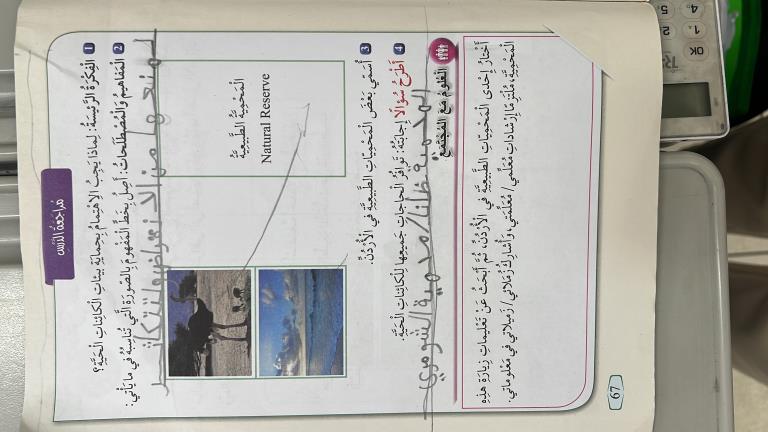 مُراجَعَةُ الدَّرْسِ
1 الْفِكْرَةُ الرَّئيسَةُ: لِماذا يَجِبُ الِاهْتِمامُ بِحِمايَةِ بيئاتِ الْكائِناتِ الْحَيَّةِ؟
لمنعها من الانقراض ولتتكاثر
2 الْمَفاهيمُ وَالْمُصْطَلَحاتُ: أَصِلُ بِخَطٍّ الْمَفْهومَ بِالصّورَةِ الَّتي تُناسِبُهُ في ما يَأْتي:
الْمَحْمِيَّةُ الطَّبيعِيَّةُ
Natural Reserve
3 أُسَمّي بَعْضَ الْمَحْمِيّاتِ الطَّبيعِيَّةِ في الْأُرْدُنِّ.
4 أَطْرَحُ سُؤالًا إِجابَتُهُ: تَوافُرُ الْحاجاتِ جَميعِها لِلْكائِناتِ الْحَيَّةِ.
محمية الشومري
الْعُلومُ مَعَ الْمُجْتَمَعِ
أَخْتارُ إِحْدى الْمَحْمِيّاتِ الطَّبيعِيَّةِ في الْأُرْدُنِّ، ثُمَّ أَبْحَثُ عَنْ تَعْليماتِ زِيارَةِ هذِهِ
الْمَحْمِيَّةِ، مُلْتَزِمًا إِرْشاداتِ مُعَلِّمي/ مُعَلِّمَتي، وَأُشارِكُ زُمَلائي/ زَميلاتي في مَعْلوماتي.
67
OK
1
2
4
5